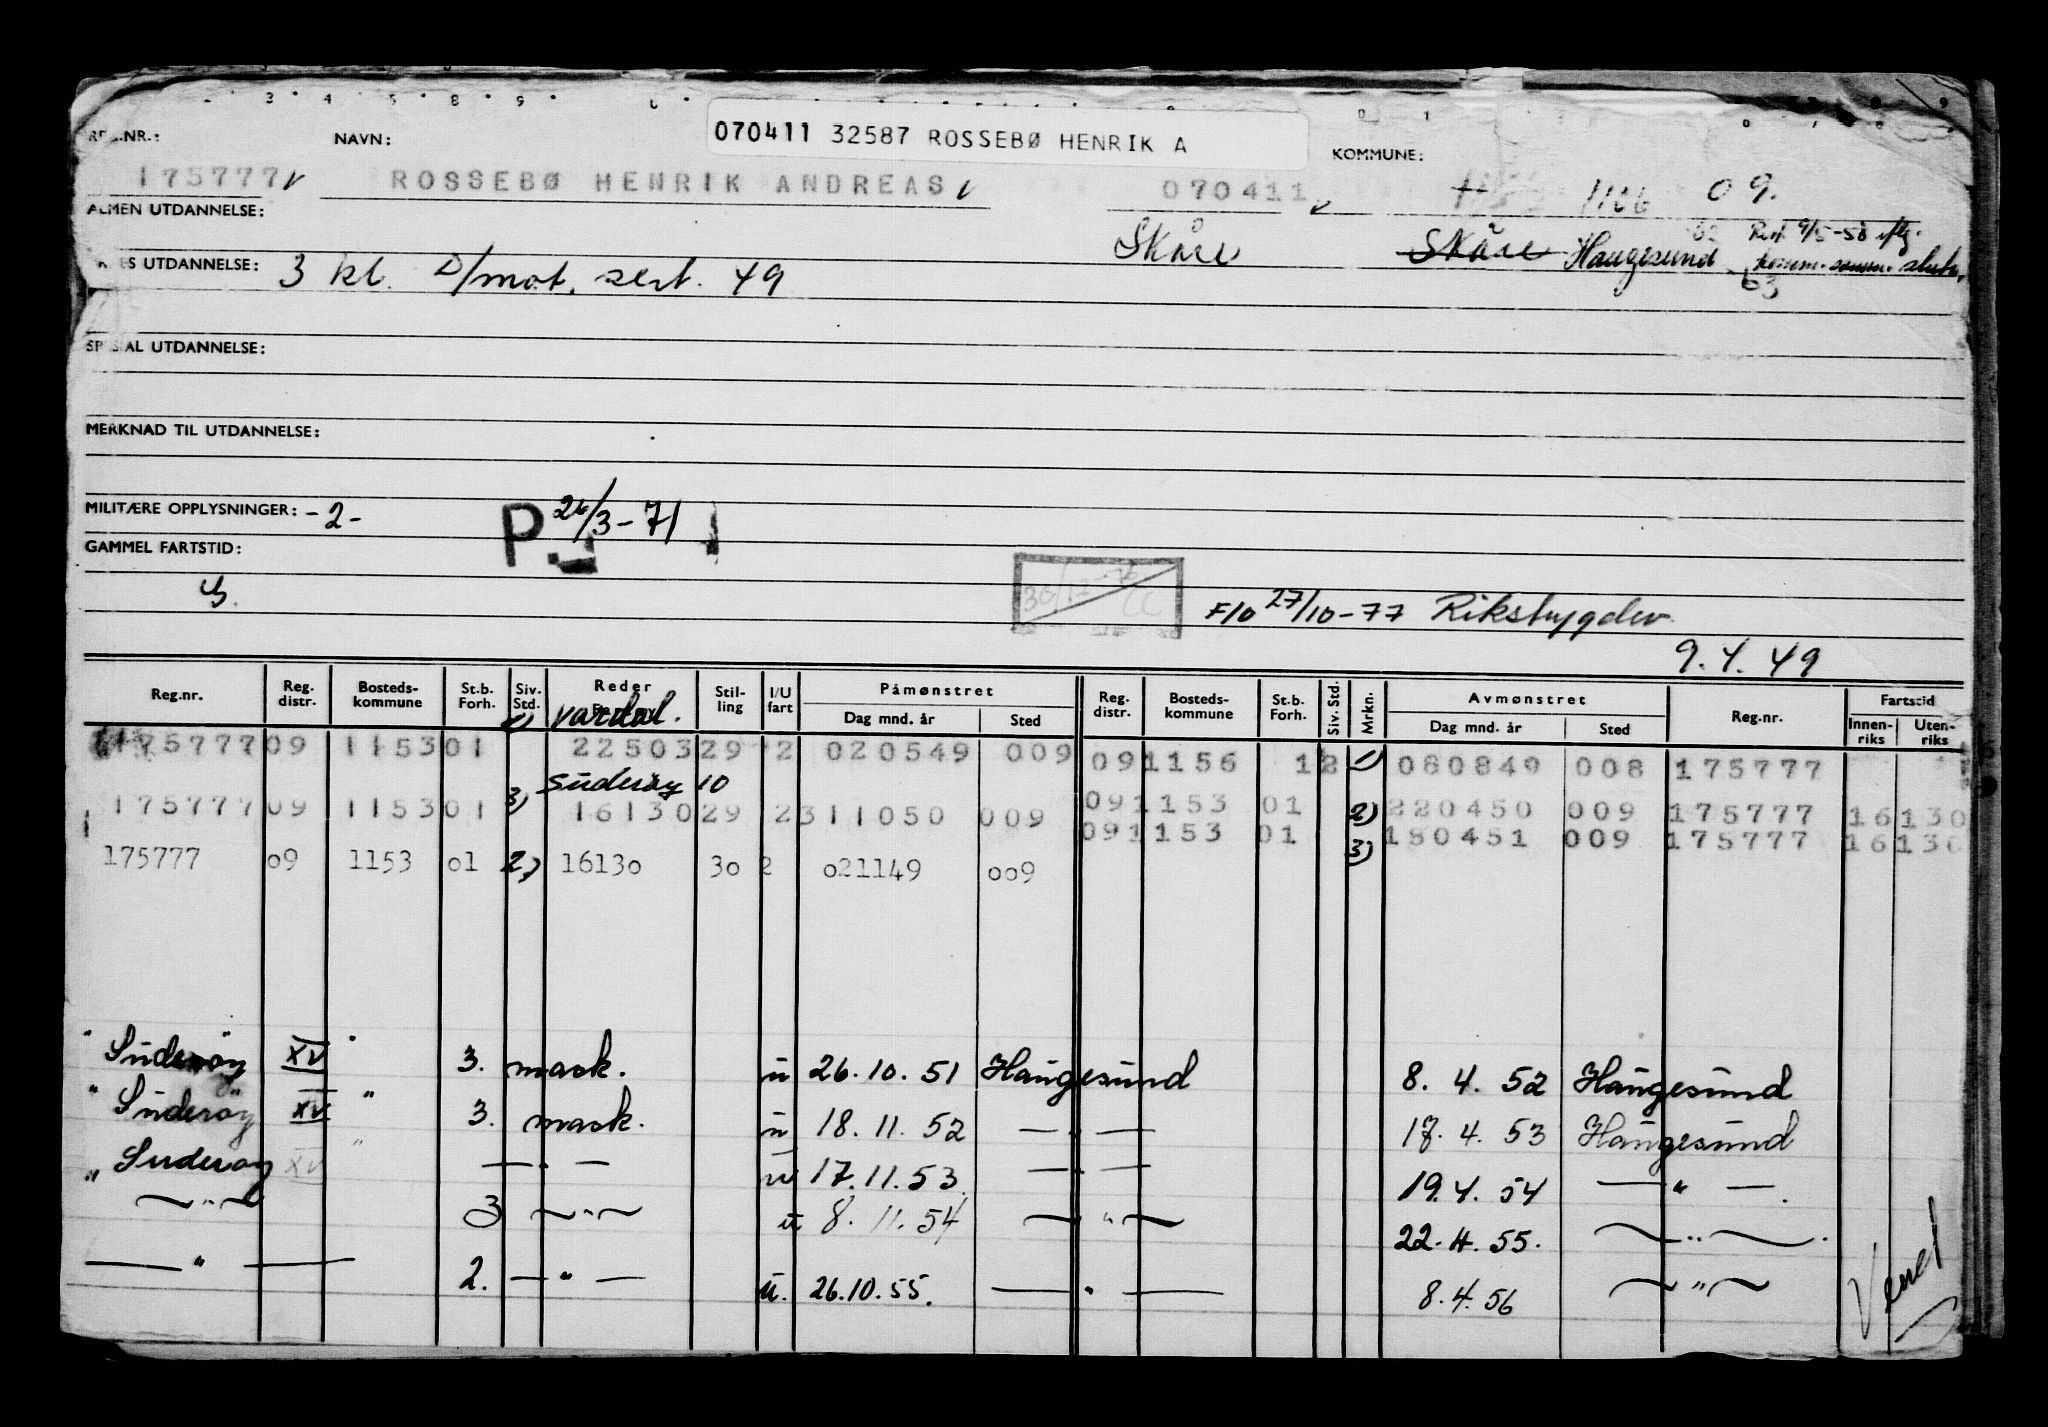 070411 32587 ROSSEBØ HENRIK A
NAVN: KOMMUNE:
175777 ROSSEBØ HENRIK ANDREAS 070411 1106 09.
ALMEN UTDANNELSE:
Skåre Skåre Haugesund
UTDANNELSE: 3 kl. D/mot. sert. 49
63
SPESIAL UTDANNELSE:
MERKNAD TIL UTDANNELSE:
MILITÆRE OPPLYSNINGER: -2- P 26/3-71
GAMMEL FARTSTID:
F/O 27/10-77 Rikstrygden
9.4.49
Reg.nr. Reg. distr. Bosteds- kommune St.b. Forh. Siv. Std. Reder Stil- ling I/U fart Påmønstret Dag mnd. år Sted Reg. distr. Bosteds- kommune St.b. Forh. Siv. Std. Mrkn. Avmønstret Dag mnd. år Sted Reg.nr. Fartstid Innen- riks Uten- riks
1) Vardal.
175777 09 1153 01 22503 29 2 020549 009 09 1156 1 2 1) 080849 008 175777
Suderøy 10
175777 09 1153 01 3) 16130 29 2 311050 009 09 1153 01 2) 220450 009 175777 16130
09 1153 01 3) 180451 009 175777 16130
175777 09 1153 01 2) 16130 30 2 021149 009
"Suderøy XV" 3. mask. u 26.10.51 Haugesund 8.4.52 Haugesund
"Suderøy XV" 3. mask. u 18.11.52 — " — 17.4.53 Haugesund
"Suderøy XV" — " — u 17.11.53. — " — 19.4.54 — " —.
— " — 3 — " — u 8.11.54 — " — 22.4.55. — " —.
— " — 2. — " — u. 26.10.55. — " — 8.4.56 — " —
Vend